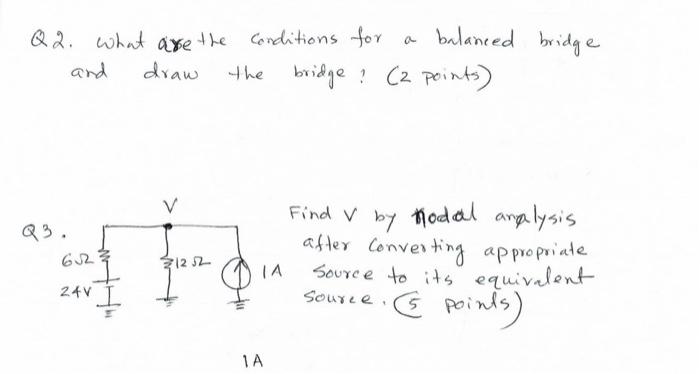 Q2. What are the Conditions for a balanced bridge
and draw the bridge? (2 points)
V
Q3.
6Ω
24V
12Ω
1A
Find V by nodal analysis
after Converting appropriate
Source to its equivalent
Source. (5 points)
1A